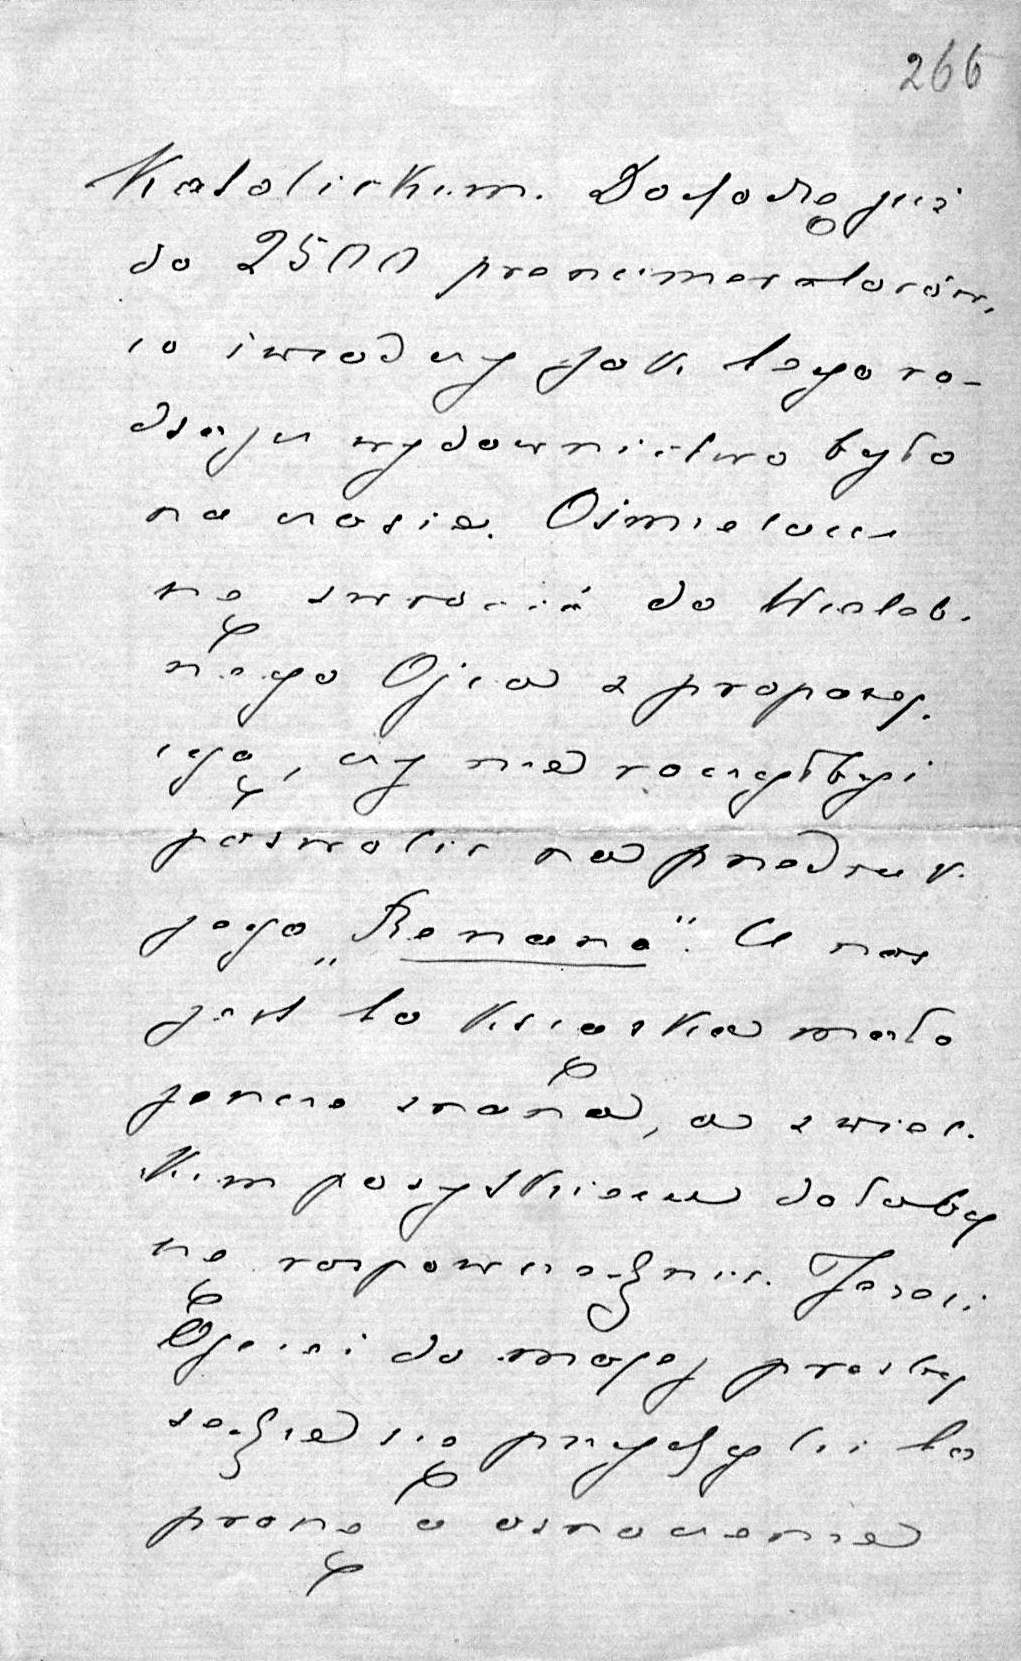 266
Katolickim. Dochodzę już
do 2500 prenumeratorów,
co świadczy jak tego ro-
dzaju wydawnictwo było
na czasie. Ośmielam
się zwrócić do Wieleb-
nego Ojca z propozy-
cyą, czy nie raczyłbyś
pozwolić na przedruk
jego „Renana”. U nas
jest to książka mało
jeszcze znana, a z wiel-
kim pożytkiem dałaby
się rozpowszechnić. Jeżeli
Ojciec do mojej prośby
zechce się przychylić to
proszę o oznaczenie